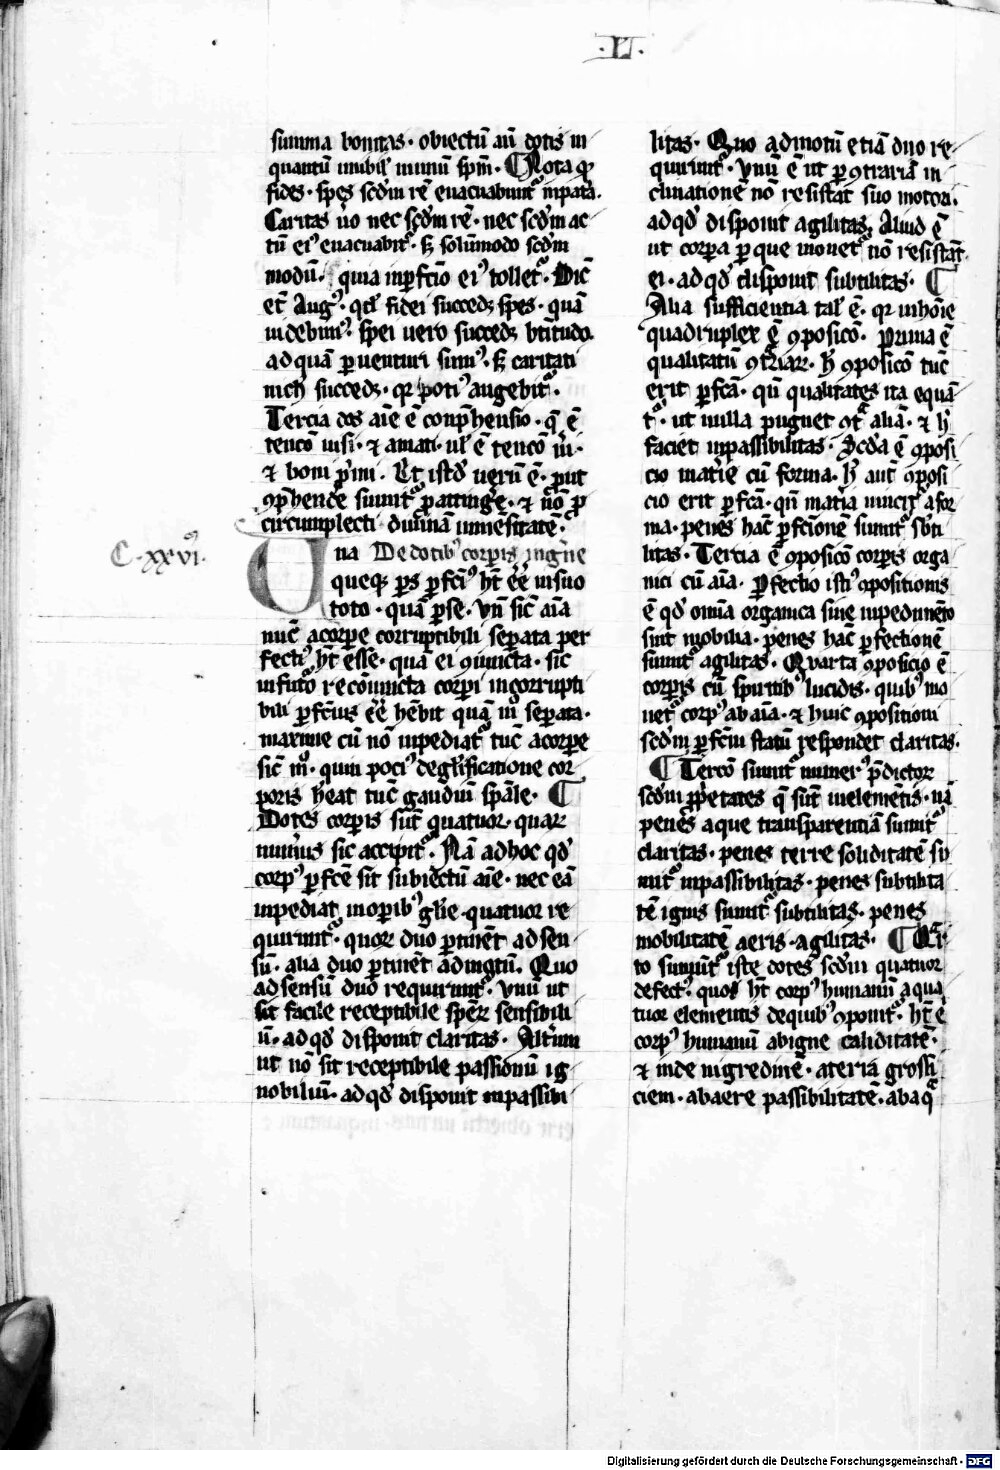 ·L·
summa bonitas · obiectū aū dotis in
quantū inuibil' munū spm̄ · Nota qͥ
fides · spes scd̓m rē euacuabuntͬ in pata.
Caritas ūo nec scd̓m rē · nec scd̓m ac
tū eiꝰ euacuabitͬ · sꝫ solūmodo scd̓m
modū · quia inꝑfectio eiꝰ tolletͬ · Dic̄
et̄ Augꝰ · qd̓ fidei succedꝫ spes · quā
uidebimꝰ · spei uero succedꝫ btitudo
ad quā ꝑuenturi simꝰ · sꝫ caritati
nich succedꝫ · qꝛ potiꝰ augebitͬ ·
Tercia dos aīe ē conp̄hensio · q̄ ē
tencō uisi · ⁊ amati · ul' ē tencō ūi ·
⁊ boni p̄mi · Et istd̓ uerū ē · put
ꝯp̄hende sumitͬ ꝑ attingē · ⁊ nō ꝑ
circumplecti diuinā inmēsitatē ·
C · xxviͦ ·
Una De dotibꝰ corpis in gn̄e
queqꝫ ps ꝑfciꝰ ht̄ ēē in suo
toto · quā ꝑ se · Vn̄ sic̄ aīa
nūc a corpe corruptibili seꝑata per
fectiꝰ ht̄ esse · quā ei ꝯiuncta · sic
in futͦo recōiuncta corpi incorrupti
bili ꝑfcius ēē hēbit quā mͦ seꝑata ·
maxime cū nō inpediatͬ tuc a corpe
sic̄ mͦ · quin pociꝰ de gl'ificatione cor
poris heat tuc gaudiū spāle ·
Dotes corpis sūt quatuor · quaꝝ
numus sic accipitͬ · Nā ad hoc qd̓
corpꝰ ꝑfcē sit subiectū aīe · nec eā
inpediat in opibꝰ gl'ie · quatuor re
quiruntͬ · quoꝝ duo ꝑtinēt ad sen
sū · alia duo ꝑtinēt ad motū · Quo
ad sensū duo requiruntͬ · Vnū ut
sit facile receptibile speꝝ sensibili
ū · ad qd̓ disponit claritas · Altum
ut nō sit receptibile passionū ig
nobiliū · ad qd̓ disponit inpassibi
litas · Quo ad motū etiā duo re
quiruntͬ · Vnū ē ut ꝑ ꝯtrariā in
clinationē nō resistat suo motori ·
ad qd̓ disponit agilitas · Aliud ē
ut corpa ꝑ que mouetͬ nō resistāt
ei · ad qd̓ disponit subtilitas ·
Alia sufficientia tal' ē · qꝛ in hoīe
quadruplex ē ꝯposicō · Prima ē
qualitatū ꝯtrariaꝝ · h̄ ꝯposicō tūc
erit ꝑfcā · qn̄ qualitates ita equā
tͬ · ut nulla pugnet ꝯt̄ aliā · ⁊ h̓
faciet inpassibilitas · Scd̓a ē ꝯposi
cio mat̓ie cū forma · h̄ aut̄ ꝯposi
cio erit ꝑfcā · qn̄ mat̓ia uincitͬ a for
ma · penes hāc ꝑfcionē sumitͬ sbti
litas · Tercia ē ꝯposicō corpis orga
nici cū aīa · Perfectio istiꝰ ꝯpositionis
ē qd̓ omīa organica sine inpedimēto
sint mobilia · penes hāc ꝑfectionē
sumitͬ agilitas · Quarta ꝯposicio ē
corpis cū spiritibꝰ lucidis · quibꝰ mo
uetͬ corpꝰ ab aīa · ⁊ huic ꝯpositioni
scd̓m ꝑfcm̄ statū respondet claritas ·
Tercō sumitͬ numerꝰ p̄dictoꝝ
scd̓m ꝓprietates q̄ sūt in elemētis · nā
penes aque transparentiā sumitͬ
claritas · penes terre soliditatē su
mitͬ inpassibilitas · penes subtilita
tē ignis sumitͬ subtilitas · penes
mobilitatē aeris · agilitas · Quar
to sumūtͬ iste dotes scd̓m quatuor
defectꝰ · quos ht̄ corpꝰ humanū a qua
tuor elementis de quibꝰ ꝯponitͬ · ht̄ ē
corpꝰ humanū ab igne caliditatē ·
⁊ inde nigredinē · a terra grossi
ciem · ab aere passibilitatē · ab aqͣ
Digitalisierung gefördert durch die Deutsche Forschungsgemeinschaft · DFG